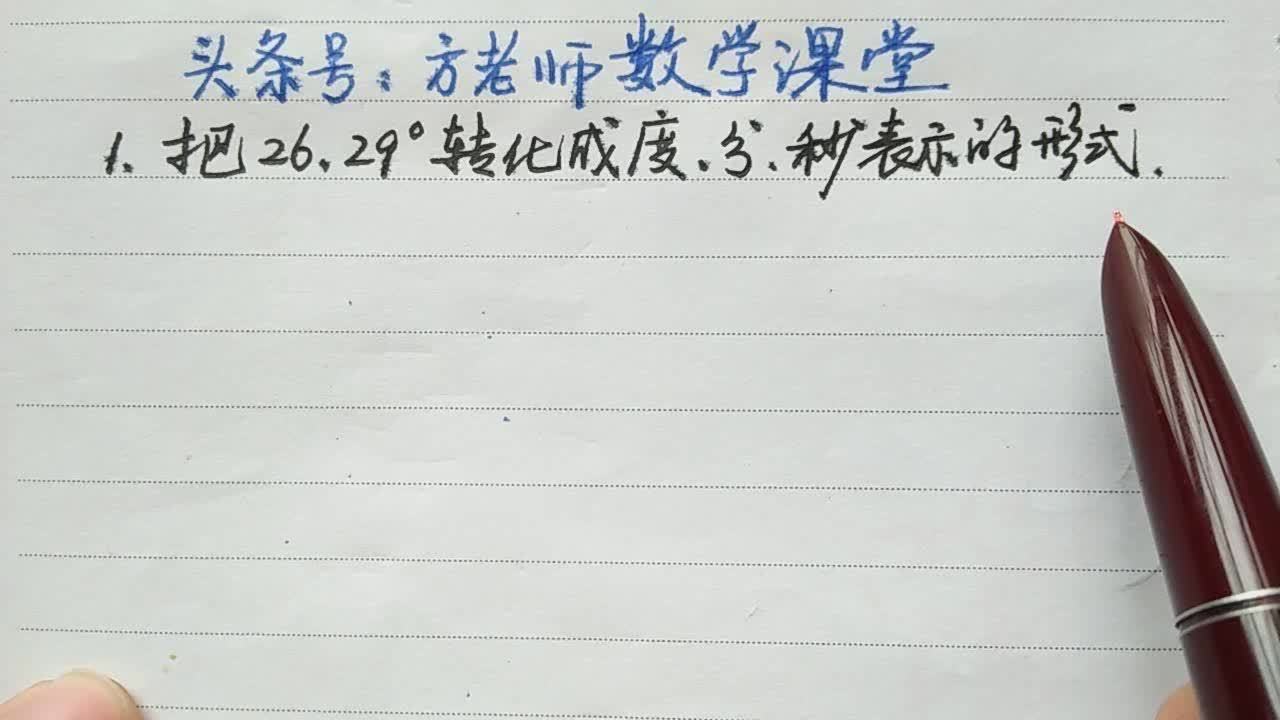 头条号:方老师数学课堂
1. 把26.29°转化成度.分.秒表示的形式.